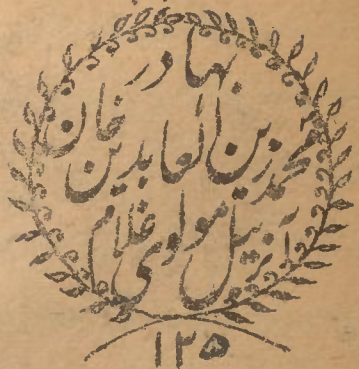 بهادر
محمد زین العابدین خان
آنریبل مولوی غلام
۱۳۵